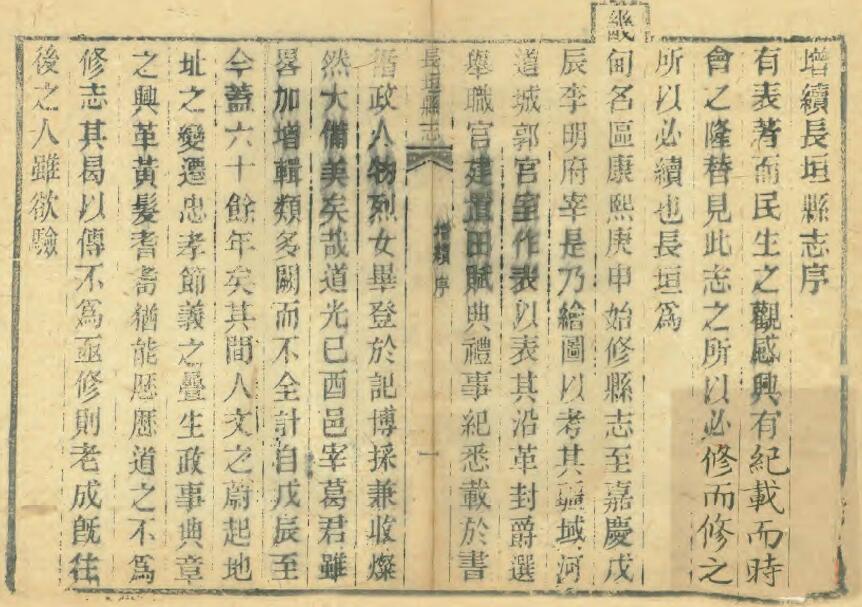 增續長垣縣志序
有表著而民生之觀感興有紀載而時
會之隆替見此志之所以必修而修之
所以必續也長垣爲
畿
甸名區康熙庚申始修縣志至嘉慶戊
辰李明府宰是乃繪圖以考其疆域河
道城郭宮室作表以表其沿革封爵選
舉職官建置田賦典禮事紀悉載於書
長垣縣志
增續序
一
循政人物烈女畢登於記博採兼收燦
然大備美矣哉道光已酉邑宰葛君雖
畧加增輯類多闕而不全計自戊辰至
今蓋六十餘年矣其間人文之蔚起地
址之變遷忠孝節義之疊生政事典章
之興革黃髮耆耇猶能歷歷道之不爲
修志其曷以傳不爲亟修則老成旣往
後之人雖欲驗